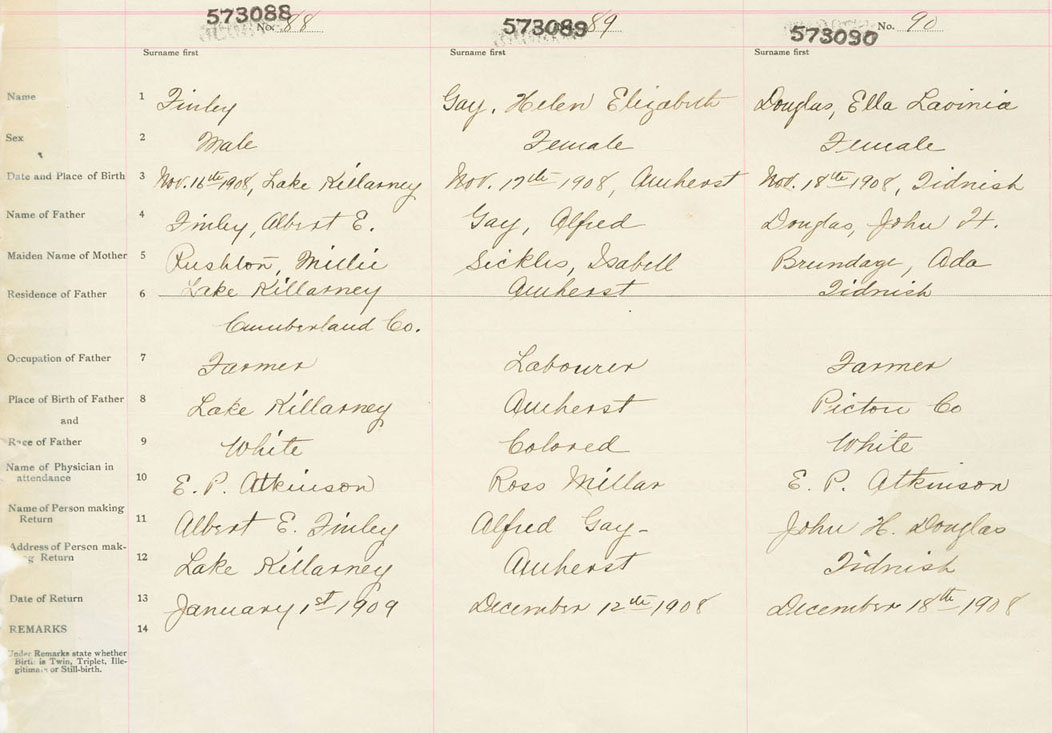 573088 No. 88 573089 89 573090 No. 90
Surname first Surname first Surname first
Name 1 Finley Gay, Helen Elizabeth Douglas, Ella Lavinia
Sex 2 Male Female Female
Date and Place of Birth 3 Nov. 16th 1908, Lake Killarney Nov. 17th 1908, Amherst Nov. 18th 1908, Tidnish
Name of Father 4 Finley, Albert E. Gay, Alfred Douglas, John H.
Maiden Name of Mother 5 Rushton, Millie Sickles, Isabell Brundage, Ada
Residence of Father 6 Lake Killarney Amherst Tidnish
Cumberland Co.
Occupation of Father 7 Farmer Labourer Farmer
Place of Birth of Father 8 Lake Killarney Amherst Pictou Co
and
Race of Father 9 White Colored White
Name of Physician in
attendance 10 E. P. Atkinson Ross Millar E. P. Atkinson
Name of Person making
Return 11 Albert E. Finley Alfred Gay- John H. Douglas
Address of Person mak-
ing Return 12 Lake Killarney Amherst Tidnish
Date of Return 13 January 1st 1909 December 12th 1908 December 18th 1908
REMARKS 14
Under Remarks state whether
Birth is Twin, Triplet, Ille-
gitimate or Still-birth.